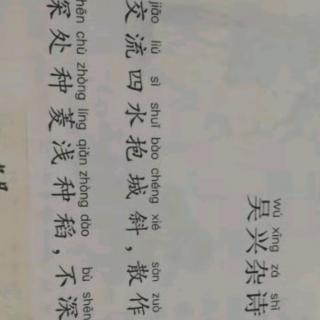 wú xīng zá shī
吴兴杂诗
jiāo liú sì shuǐ bào chéng xié sàn zuò
交流四水抱城斜，散作
hēn chù zhòng líng qiǎn zhòng dào bù shēn
深处种菱浅种稻，不深